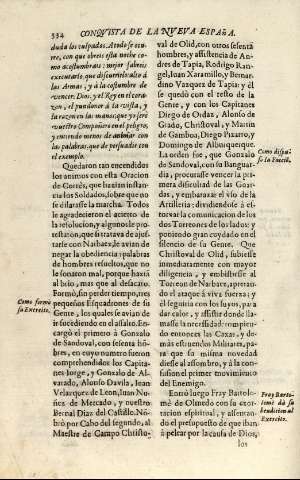 334 CONQVISTA DE LA NVEVA ESPAÑA.
duda los culpados. A todo se ocu-
rre, con que obreis esta noche co-
mo acostumbrais: mejor sabreis
executarlo, que discurrirlo: alto á
las Armas, y á la costumbre de
vencer: Dios, y el Rey en el coraz-
on, el pundonor á la vista, y
la razon en las manos; que yo serè
vuestro Compañero en el peligro,
y entiendo menos de animar con
las palabras, que de persuadir con
el exemplo.
Quedaron tan encendidos
los animos con esta Oracion
de Cortès, que hazian instan-
cia los Soldados, sobre que no
se dilatasse la marcha. Todos
le agradecieron el acierto de
la resolucion, y algunos le pro-
testaron, que si tratava de ajus-
tarse con Narbaez, le avian de
negar la obediencia: palabras
de hombres resueltos, que no
le sonaron mal, porque hazian
al brio, mas que al desacato.
Formò, sin perder tiempo, tres
pequeños Esquadrones de su
Gente, los quales se avian de
ir sucediendo en el assalto. Encar-
gò el primero à Gonzalo
de Sandoval, con sesenta hõm-
bres, en cuyo numero fueron
comprehendidos los Capita-
nes Jorge, y Gonzalo de Al-
varado, Alonso Davila, Iuan
Velazquez de Leon, Iuan Nu-
ñez de Mercado, y nuestro
Bernal Diaz del Castillo. Nõ-
brò por Cabo del segundo, al
Maestre de Campo Christo-
Como formò
su Exercito.
val de Olid, con otros sesenta
hombres, y assistencia de An-
dres de Tapia, Rodrigo Ran-
gel, Iuan Xaramillo, y Bernar-
dino Vazquez de Tapia: y el
se quedò con el resto de la
Gente, y con los Capitanes
Diego de Ordaz, Alonso de
Grado, Christoval, y Martin
de Gamboa, Diego Pizarro, y
Domingo de Alburquerque.
La orden fue, que Gonzalo
de Sandoval, con su Banguar-
dia, procurasse vencer la pri-
mera dificultad de las Gra-
das, y embarazar el vso de la
Artilleria; dividiendose à es-
torvar la comunicacion de los
dos Torreones de los lados: y
poniendo gran cuydado en el
silencio de su Gente. Que
Christoval de Olid, subiesse
inmediatamente con mayor
diligencia, y embistiesse al
Torreon de Narbaez, apretan-
do el ataque á viva fuerza; y
el seguiria con los suyos, para
dar calor, y assistir donde lla-
masse la necessidad: rompien-
do entonces las Caxas, y de-
mas estruendos Militares, pa-
ra que su misma novedad
diesse al assombro, y à la con-
fusion el primer movimiento
del Enemigo.
Entrò luego Fray Bartolo-
mè de Olmedo con su exor-
tacion espiritual, y assentan-
do el presupuesto de que iban
à pelear por la causa de Dios,
los
Como dispu-
so la Faccion.
Fray Barto-
lomè dà su
bendicion al
Exercito.